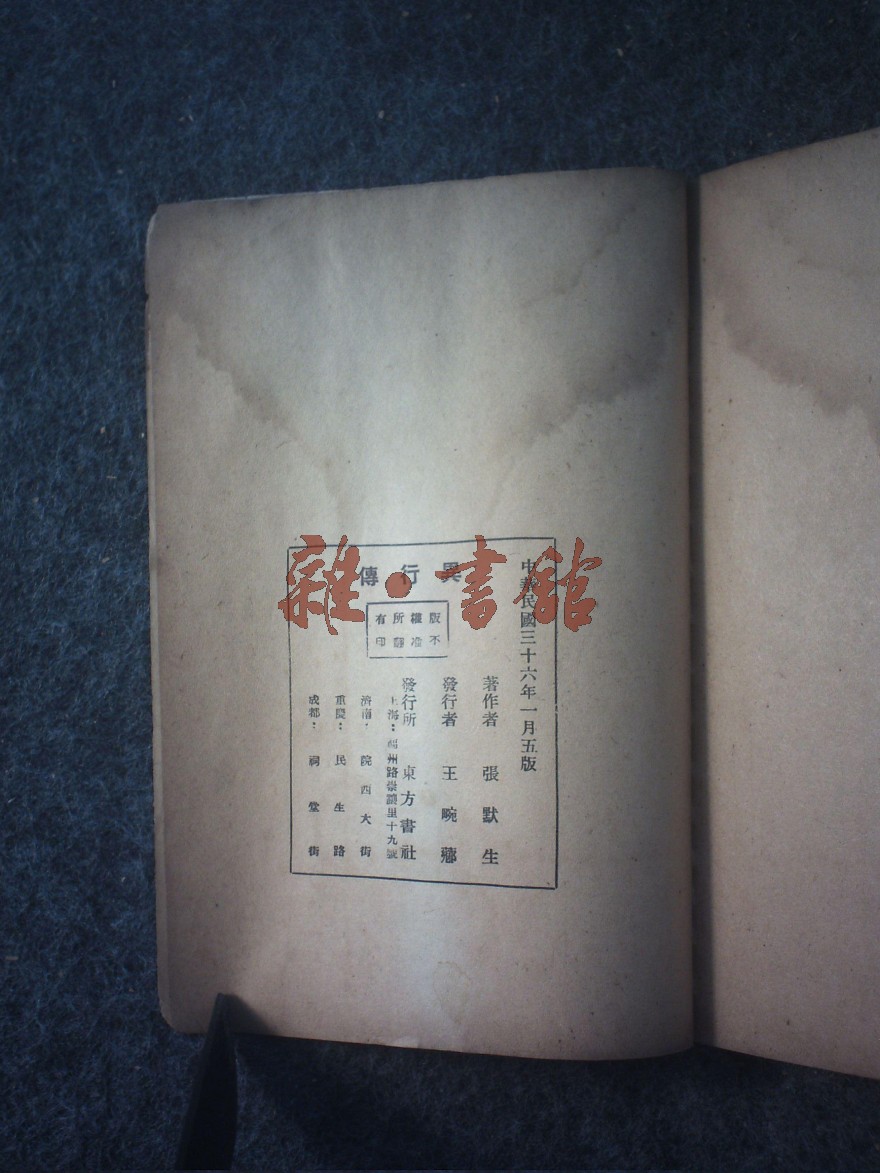 中華民國三十六年一月五版
異行傳
版權所有
不准翻印
著作者 張默生
發行者 王畹薌
發行所 東方書社
上海：福州路崇讓里十九號
濟南：院西大街
重慶：民生路
成都：祠堂街
雜·書館